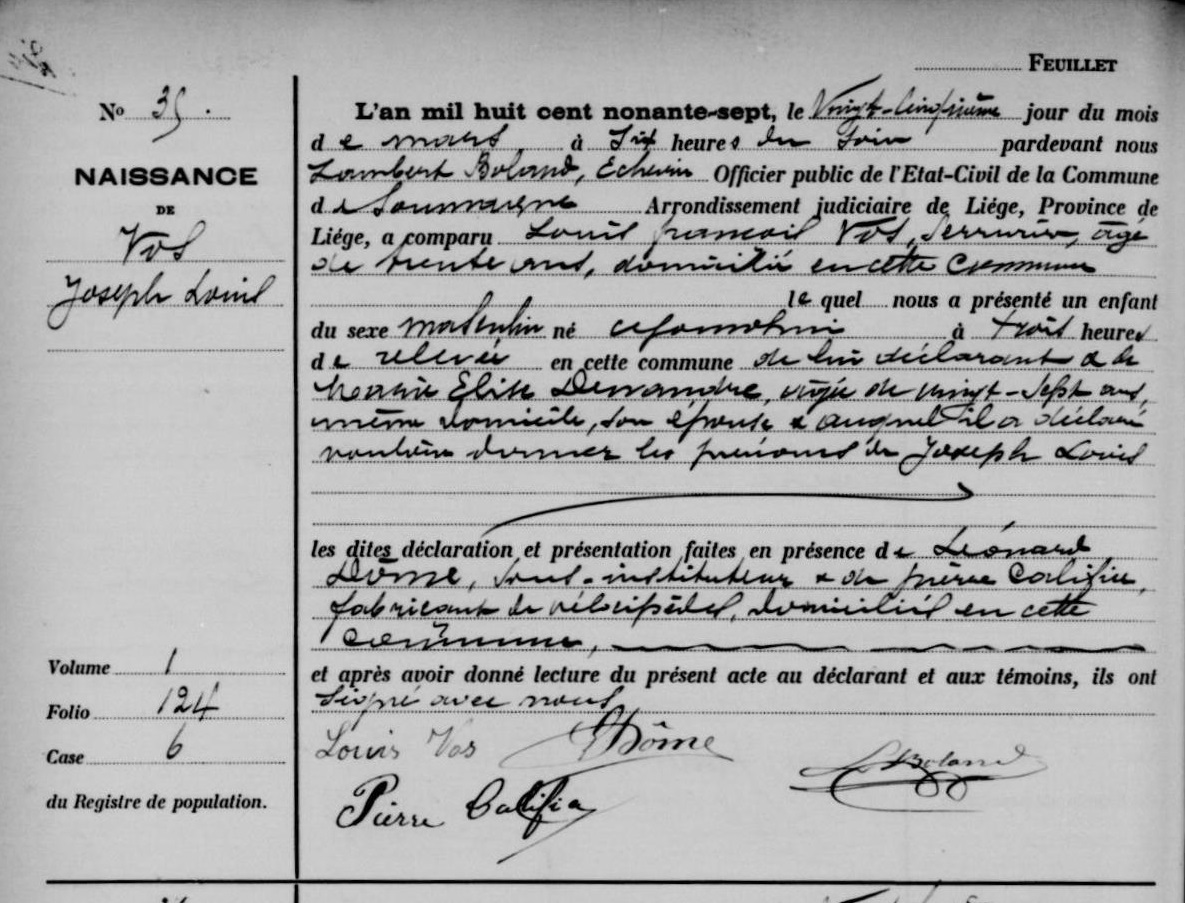 FEUILLET
No 35.
NAISSANCE
DE
Vos
Joseph Louis
L'an mil huit cent nonante-sept, le Vingt-Cinquième jour du mois
de mars à Six heures du Soir pardevant nous
Lambert Boland, Echevin Officier public de l'Etat-Civil de la Commune
de Soumagne Arrondissement judiciaire de Liége, Province de
Liége, a comparu Louis françois Vos, Serrurier, agé
de trente ans, domicilié en cette Commune
lequel nous a présenté un enfant
du sexe masculin né aujourd'hui à trois heures
de relevée en cette commune de lui déclarant & de
Marie Elise Dewandre, agée de vingt-sept ans,
même domicile, son épouse & auquel il a déclaré
vouloir donner les prénoms de Joseph Louis
les dites déclaration et présentation faites en présence de Léonard
Dôme, sous-instituteur & de pierre Califice,
fabricant de vélocipèdes, domiciliés en cette
commune,
et après avoir donné lecture du présent acte au déclarant et aux témoins, ils ont
signé avec nous
Louis Vos Dôme
L Boland
Pierre Califice
Volume 1
Folio 124
Case 6
du Registre de population.